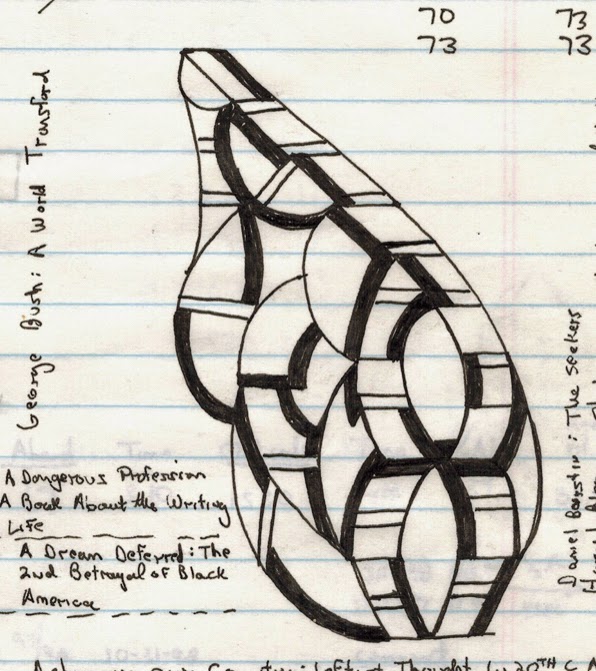 70 73
73 73
George Bush: A World Transford
A Dangerous Profession
A Book About the Writing
Life
A Dream Deferred: The
2nd Betrayal of Black
America
Daniel Boorstin: The Seekers
Leftist Thought in 20TH C